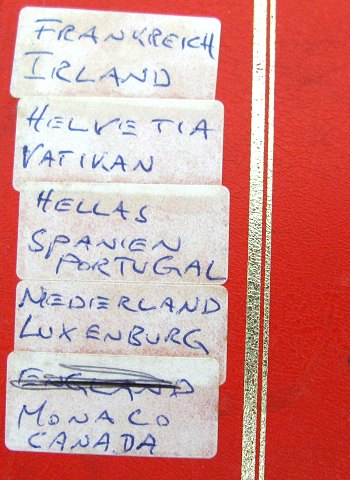 FRANKREICH
IRLAND
HELVETIA
VATIKAN
HELLAS
SPANIEN
PORTUGAL
NEDIERLAND
LUXENBURG
ENGLAND
MONACO
CANADA